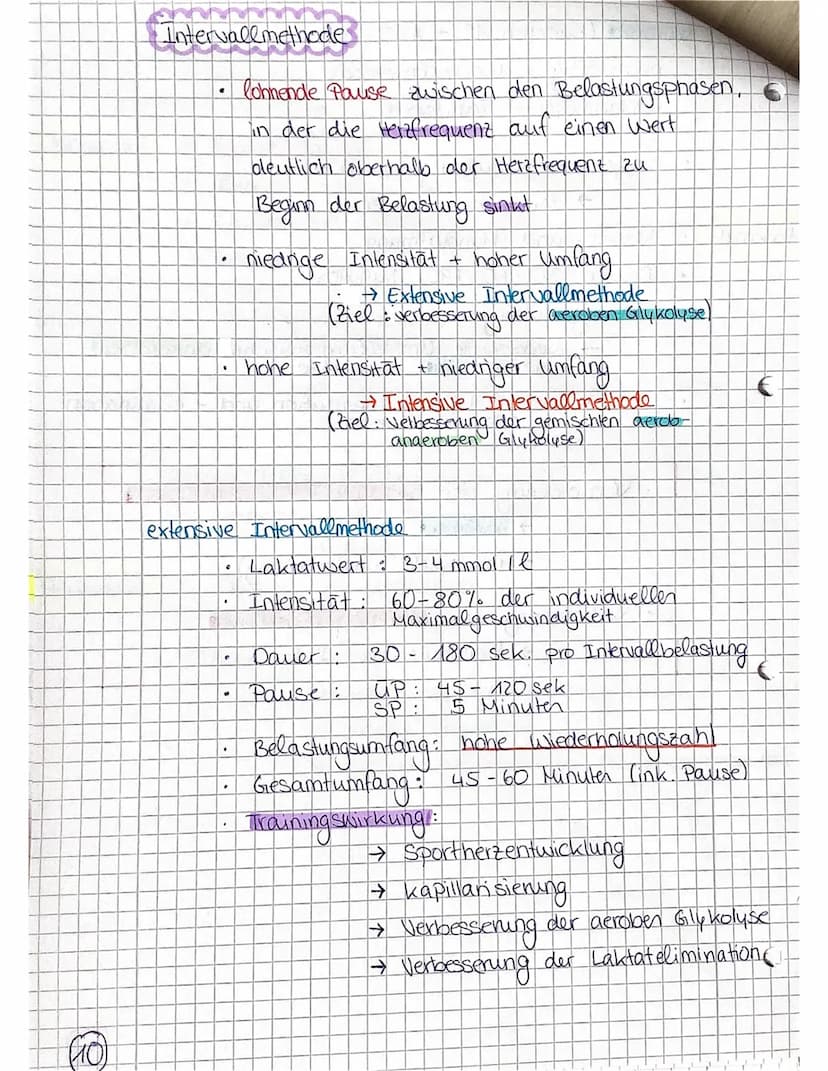 Intervallmethode
• lohnende Pause zwischen den Belastungsphasen,
in der die Herzfrequenz auf einen Wert
deutlich oberhalb der Herzfrequenz zu
Beginn der Belastung sinkt
• niedrige Intensität + hoher Umfang
→ Extensive Intervallmethode
(Ziel: Verbesserung der aeroben Glykolyse)
• hohe Intensität + niedriger Umfang
→ Intensive Intervallmethode
(Ziel: Verbesserung der gemischten aerob-
anaeroben Glykolyse)
extensive Intervallmethode
• Laktatwert: 3-4 mmol/l
• Intensität: 60-80% der individuellen
Maximalgeschwindigkeit
• Dauer: 30 - 180 sek. pro Intervallbelastung
• Pause: ÜP: 45 - 120 sek
SP: 5 Minuten
• Belastungsumfang: hohe Wiederholungszahl
• Gesamtumfang: 45-60 Minuten (ink. Pause)
• Trainingswirkung:
→ Sportherzentwicklung
→ Kapillarisierung
→ Verbesserung der aeroben Glykolyse
→ Verbesserung der Laktatelimination
10